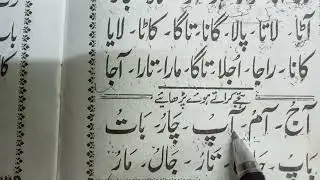 آٹا۔ لاتا۔ پالا۔ گانا۔ تاگا۔ کاٹا۔ لایا
کانا۔ راجا۔ اُجلا۔ تاگا۔ مارا۔ تارا۔ آجا
ہجے کراتے ہوئے پڑھائیے
آج۔ آم۔ آپ۔ چار۔ بات
باپ۔ تار۔ جال۔ مار